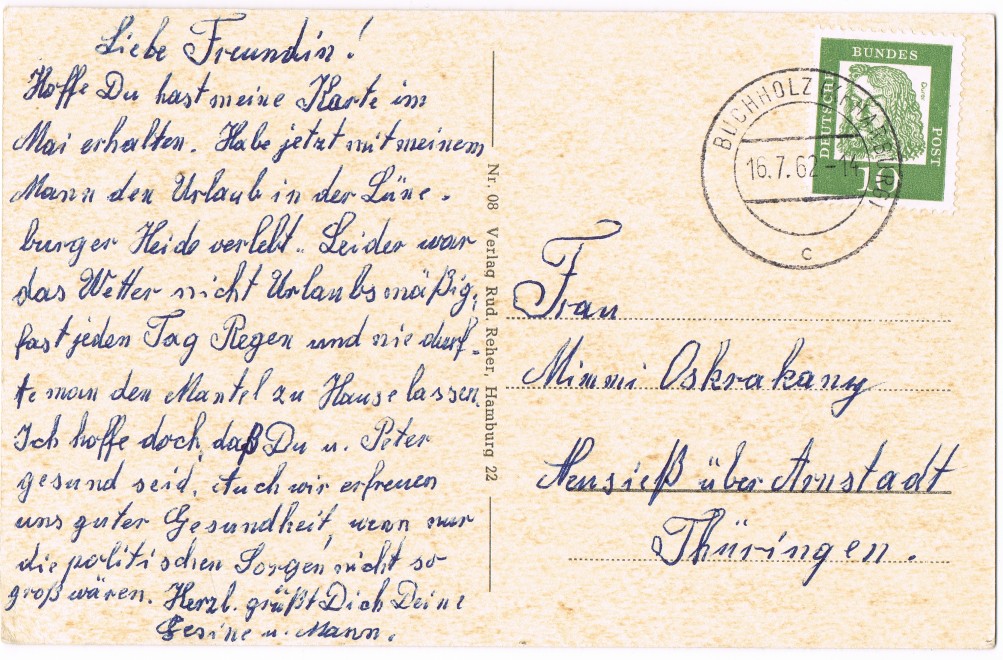 Liebe Freundin!
Hoffe Du hast meine Karte im
Mai erhalten. Habe jetzt mit meinem
Mann den Urlaub in der Lüne-
burger Heide verlebt. Leider war
das Wetter nicht Urlaubsmäßig,
fast jeden Tag Regen und nie durf-
te man den Mantel zu Hause lassen.
Ich hoffe doch, daß Du u. Peter
gesund seid. Auch wir erfreuen
uns guter Gesundheit, wenn nur
die politischen Sorgen nicht so
groß wären. Herzl. grüßt Dich Deine
Gesine u. Mann.
Nr. 08 Verlag Rud. Reher, Hamburg 22
DEUTSCHE
BUNDES
POST
Dürer
10
BUCHHOLZ
16.7.62-14
C
Frau
Mimmi Oskrakany
Neusieß über Arnstadt
Thüringen.